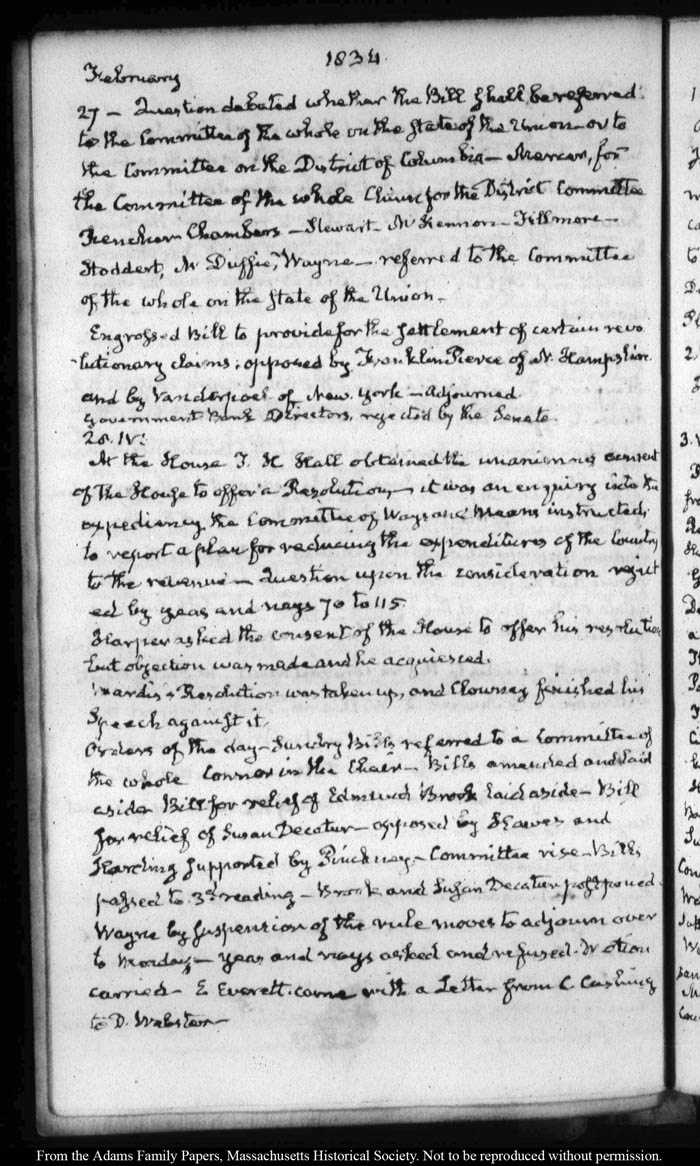 1834.
February
27 – Question debated whether the Bill shall be referred
to the Committee of the whole on the state of the Union – or to
the Committee on the District of Columbia – Mercer, for
the Committee of the whole Chinn for the District Committee
Rencher Chambers – Stewart – McKennon – Fillmore –
Stoddert, McDuffie, Wayne – referred to the Committee
of the whole on the state of the Union –
Engrossed Bill to provide for the settlement of certain revo
lutionary claims; opposed by Franklin Pierce of N. Hampshire
and by Vanderpoel of New York – adjourned
Government Bank Directors, rejected by the Senate.
28. IV:
At the House T. H Hall obtained the unanimous consent
of the House to offer a Resolution, – it was an enquiry into the
expediency the Committee of Ways and Means instructed,
to report a plan for reducing the expenditures of the Country
to the revenue – Question upon the consideration reject
ed by yeas and nays 70 to 115.
Harper asked the consent of the House to offer his resolution
but objection was made and he acquiesced.
Mardis's Resolution was taken up, and Clowney finished his
Speech against it.
Orders of the day – Sundry Bills referred to a Committee of
the whole Connor in the Chair – Bills amended and laid
aside Bill for relief of Edmund Brook laid aside – Bill
for relief of Susan Decatur – opposed by Hawes and
Harding supported by Pinckney – Committee rise – Bills
passed to 3d reading – Brook and Susan Decatur postponed.
Wayne by suspension of the rule moves to adjourn over
to Monday – yeas and nays asked and refused. Motion
carried – E Everett came with a Letter from C. Cushing
to D. Webster –
From the Adams Family Papers, Massachusetts Historical Society. Not to be reproduced without permission.